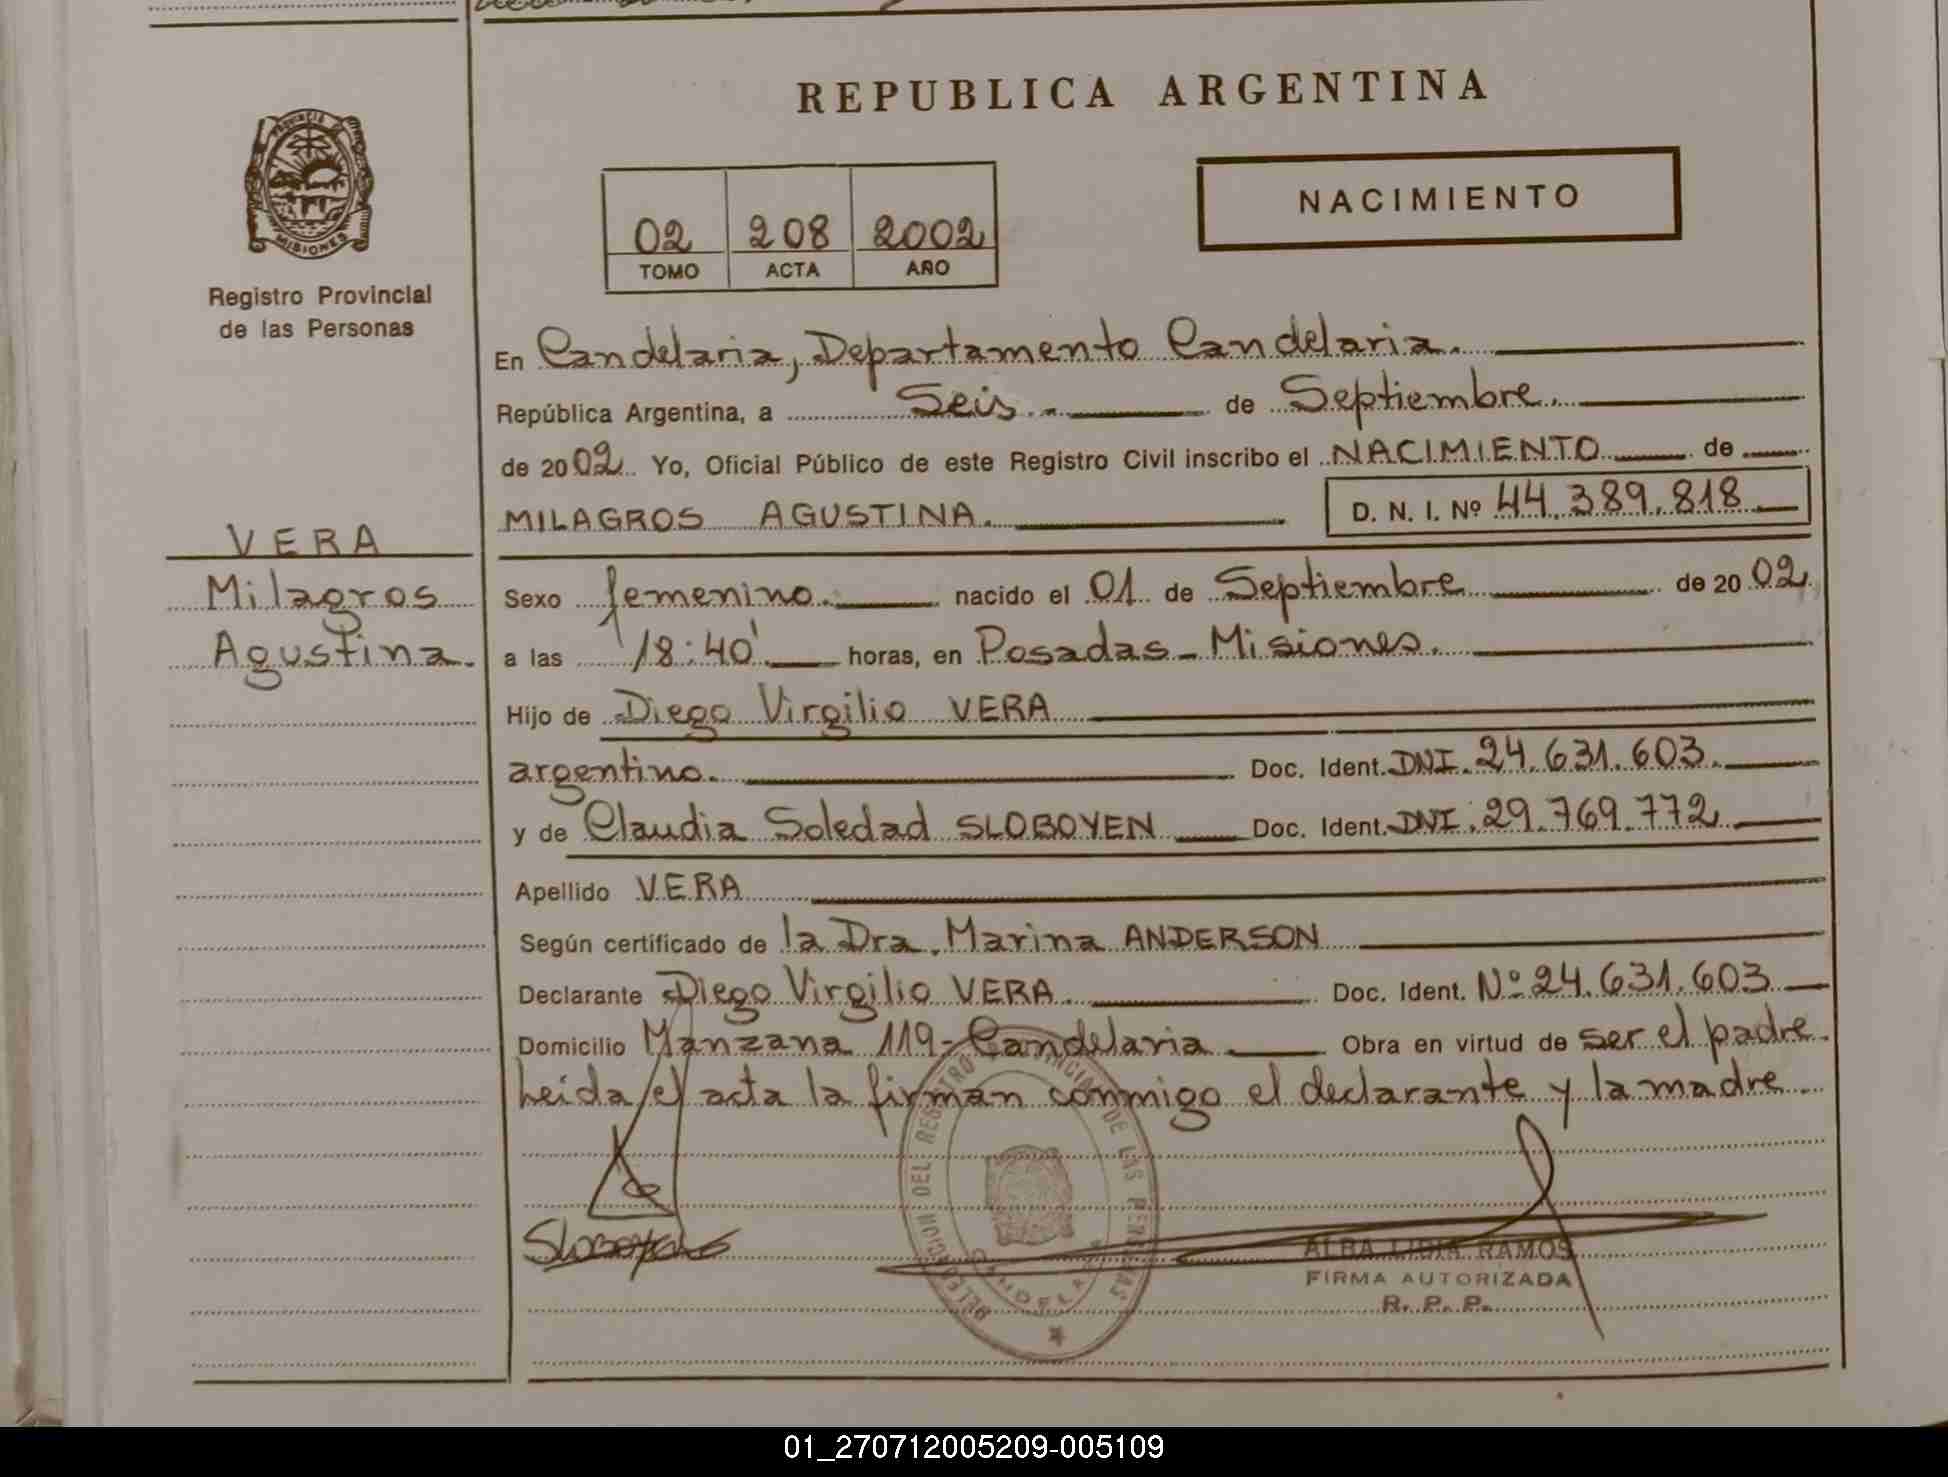 REPUBLICA ARGENTINA
PROVINCIA DE
MISIONES
Registro Provincial
de las Personas
NACIMIENTO
02 208 2002
TOMO ACTA AÑO
En Candelaria, Departamento Candelaria.
República Argentina, a Seis.- de Septiembre.
de 2002. Yo, Oficial Público de este Registro Civil inscribo el NACIMIENTO de
MILAGROS AGUSTINA. D. N. I. Nº 44.389.818
VERA
Milagros
Agustina.
Sexo femenino. nacido el 01 de Septiembre de 2002
a las 18:40' horas, en Posadas - Misiones.
Hijo de Diego Virgilio VERA
argentino. Doc. Ident. DNI. 24.631.603.
y de Claudia Soledad SLOBOYEN Doc. Ident. DNI. 29.769.772
Apellido VERA
Según certificado de la Dra. Marina ANDERSON
Declarante Diego Virgilio VERA. Doc. Ident. Nº 24.631.603
Domicilio Manzana 119- Candelaria Obra en virtud de ser el padre.
Leida el acta la firman conmigo el declarante y la madre
DELEGACION DEL REGISTRO PROVINCIAL DE LAS PERSONAS
CANDELARIA
ALBA LIDIA RAMOS
FIRMA AUTORIZADA
R. P. P.
01_270712005209-005109